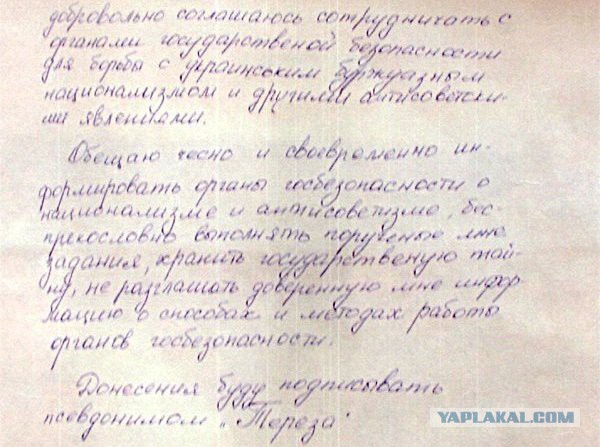 добровольно соглашаюсь сотрудничать с
органами государственой безопасности
для борьбы с украинським буржуазным
национализмом и другими антисоветски-
ми явлениями.
Обещаю чесно и своевременно ин-
формировать органы госбезопасности о
национализме и антисоветизме, бес-
прекословно выполнять порученые мне
задания, хранить государственую тай-
ну, не разглашать доверенную мне инфор
мацию о способах и методах работы
органов госбезопасности.
Донесения буду подписывать
псевдонимом "Тереза"
YAPLAKAL.COM